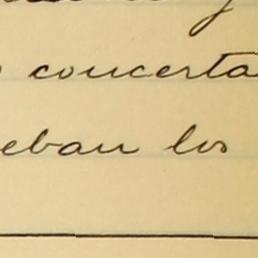 concerta
eban los